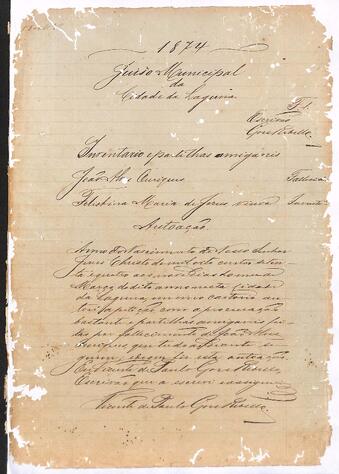 1874
Juiso Municipal
da
Cidade da Laguna
F. 1.
Escrivão
Goes Rebello
Inventario e partilhas amigaveis
João Alves Ouriques Fallecido
Felisbina Maria de Jesus viuva Inventr
Autoação
Anno do Nascimento de Nosso Senhor
Jesus Christo de mil oito centos seten
ta e quatro aos nove dias do mez de
Março do dito anno nesta cidade
da Laguna, em meu cartorio au
toei a petição com a procuração
bastante e partilhas amigaveis fei
tas por fallecimento de João Alves
Ouriques que tudo adiante se
guem, do que fiz esta autoação.
Eu Vicente de Paulo Goes Rebello
Escrivão que a escrevi e assigno
Vicente de Paulo Goes Rebello